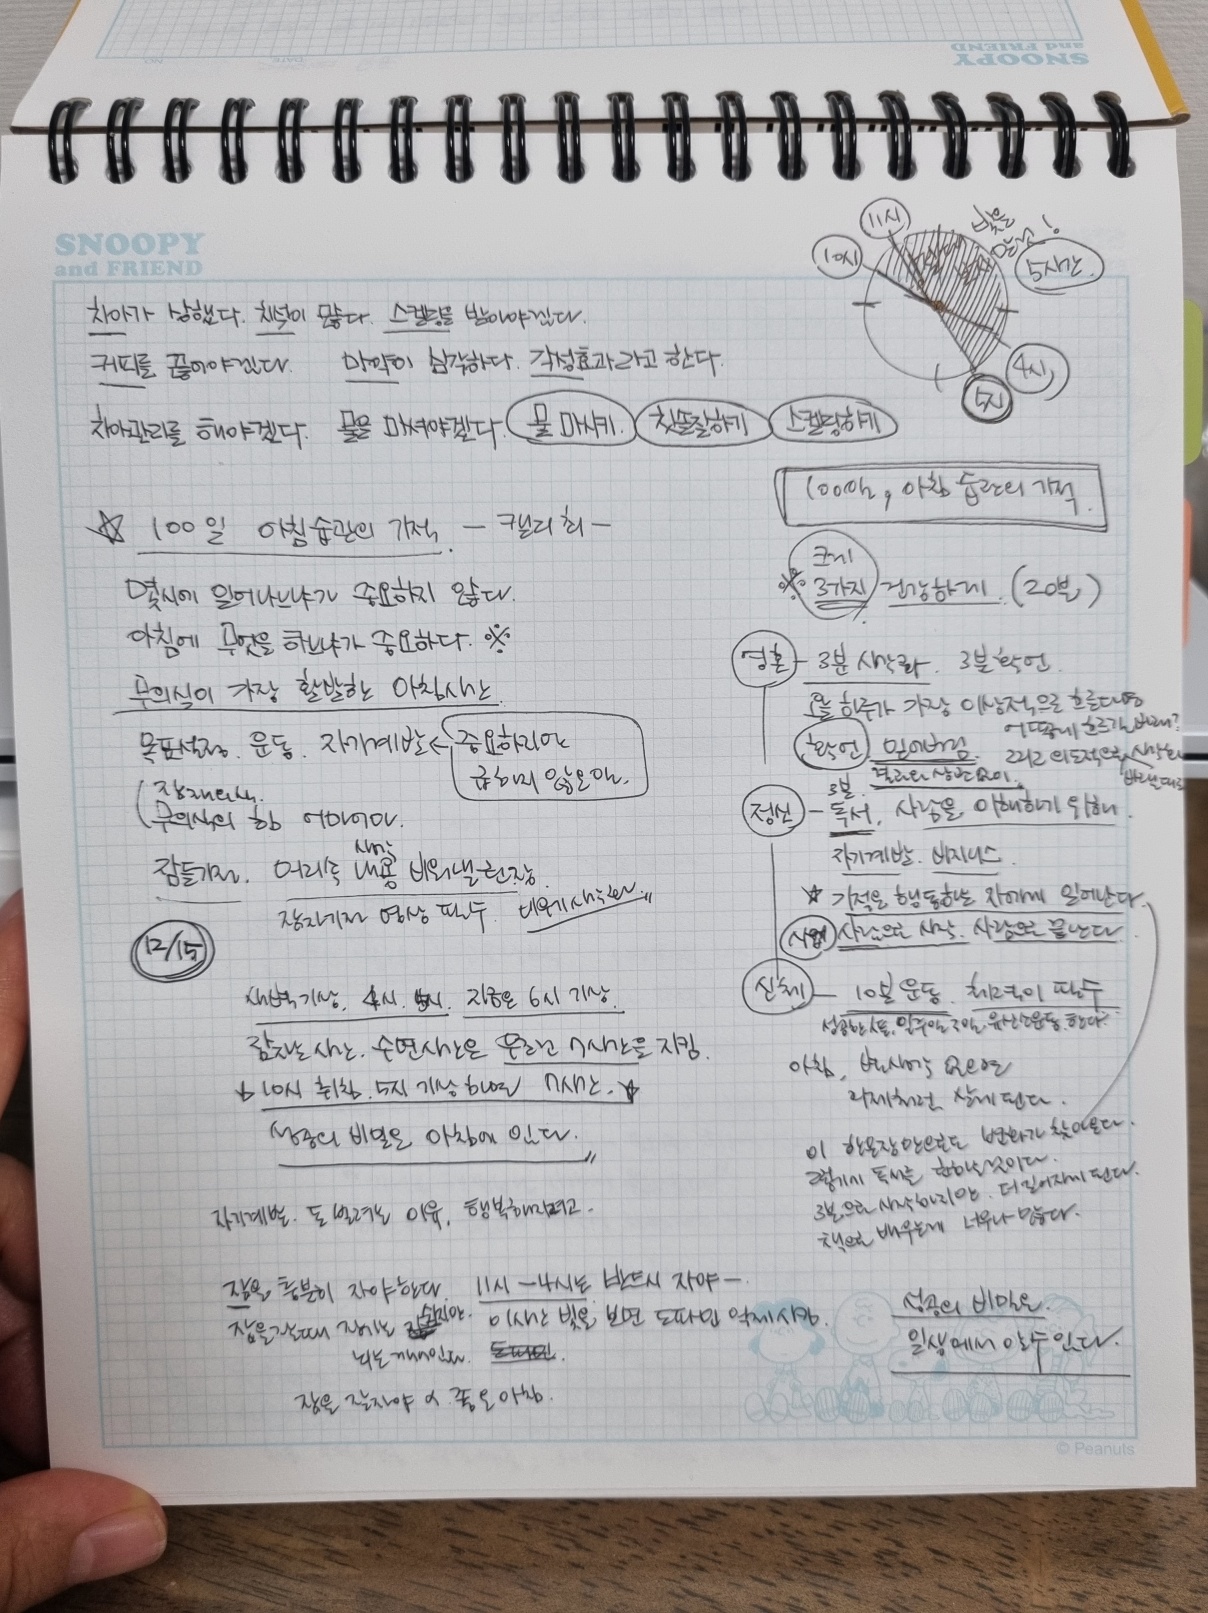 SNOOPY
and FRIEND
SNOOPY
and FRIEND
치아가 상했다. 치석이 많다. 스켈링을 받아야겠다.
커피를 끊어야겠다. 마약이 심각하다. 각성효과라고 한다.
치아관리를 해야겠다. 물을 마셔야겠다. 물 마시기. 칫솔질하기 스켈링하기
11시
10시
5시간
4시
5시
☆ 100일 아침습관의 기적. - 켈리최 -
몇시에 일어나느냐가 중요하지 않다.
아침에 무엇을 하느냐가 중요하다. ※
무의식이 가장 활발한 아침시간
목표설정. 운동. 자기계발 ← 중요하지만
급하지 않은일.
잠재의식.
무의식의 힘 어마어마.
생각
잠들기전. 머리속 내용 비워낼 권장.
잠자기전 영상 필수.
12/15
새벽기상. 4시. 5시. 지금은 6시 기상.
잠자는 시간. 수면시간은 무조건 7시간을 지킴.
☆ 10시 취침. 5시 기상 하면 7시간. ☆
성공의 비밀은 아침에 있다.
자기계발. 돈 벌려는 이유. 행복해지려고.
잠을 충분히 자야한다. 11시 - 4시는 반드시 자야 -
이시간 빛을 보면 도파민 억제시킴.
나는 깨어있다.
잠을 잘자야 좋은 아침.
100일, 아침 습관의 기적
크게
※ 3가지 건강하게. (20분)
영혼 - 3분 시각화. 3분 확언.
오늘 하루가 가장 이상적으로 흐른다면
어떻게 흐르기를 바래?
확언 믿어버림. 그리고 의도적으로 시작해
결과와 상관 없이. 바라는대로
3분.
정신 - 독서, 사람을 이해하기 위해.
자기계발. 비지니스.
☆ 기적은 행동하는 자에게 일어난다.
사업 사람으로 시작. 사람으로 끝난다.
신체 - 10분 운동. 체력이 필수
성공한사람들, 일주일 3일, 유산소운동 한다.
아침, 별생각 없으면
어제처럼 살게 된다.
이 한문장만으로도 변화가 찾아온다.
그렇기에 독서를 한하는것이다.
3분으로 시작하지만. 더 길어지게 된다.
책으로 배우는게 너무나 많다.
성공의 비밀은
일상에서 이루어진다.
© Peanuts